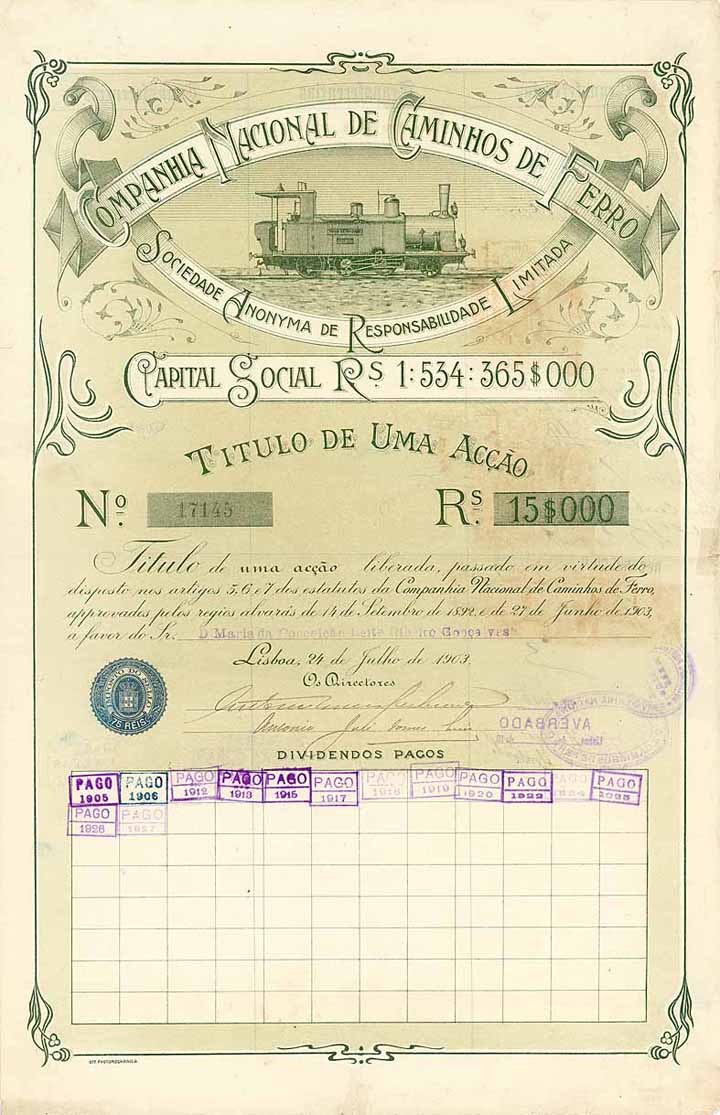 COMPANHIA NACIONAL DE CAMINHOS DE FERRO
SOCIEDADE ANONYMA DE RESPONSABILIDADE LIMITADA
CAPITAL SOCIAL RS 1:534:365$000
TITULO DE UMA ACÇÃO
Nº. 17145 RS. 15$000
Titulo de uma acção liberada, passado em virtude do
disposto nos artigos 5, 6, e 7 dos estatutos da Companhia Nacional de Caminhos de Ferro,
approvados pelos regios alvarás de 14 de Setembro de 1892, e de 27 de Junho de 1903,
a favor do Sr. D Maria da Conceição Leite Ribeiro Gonçalves
Lisboa, 24 de Julho de 1903.
Os Directores
IMPOSTO DO SELLO
75 REIS
Antonio José Gomes Lima
AVERBADO
DIVIDENDOS PAGOS
PAGO 1905
PAGO 1906
PAGO 1912
PAGO 1913
PAGO 1915
PAGO 1917
PAGO 1918
PAGO 1919
PAGO 1920
PAGO 1922
PAGO 1924
PAGO 1925
PAGO 1926
PAGO 1927